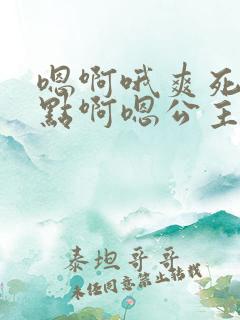 嗯啊哦爽死
點啊嗯公主
泰坦哥哥
未经同意禁止转载